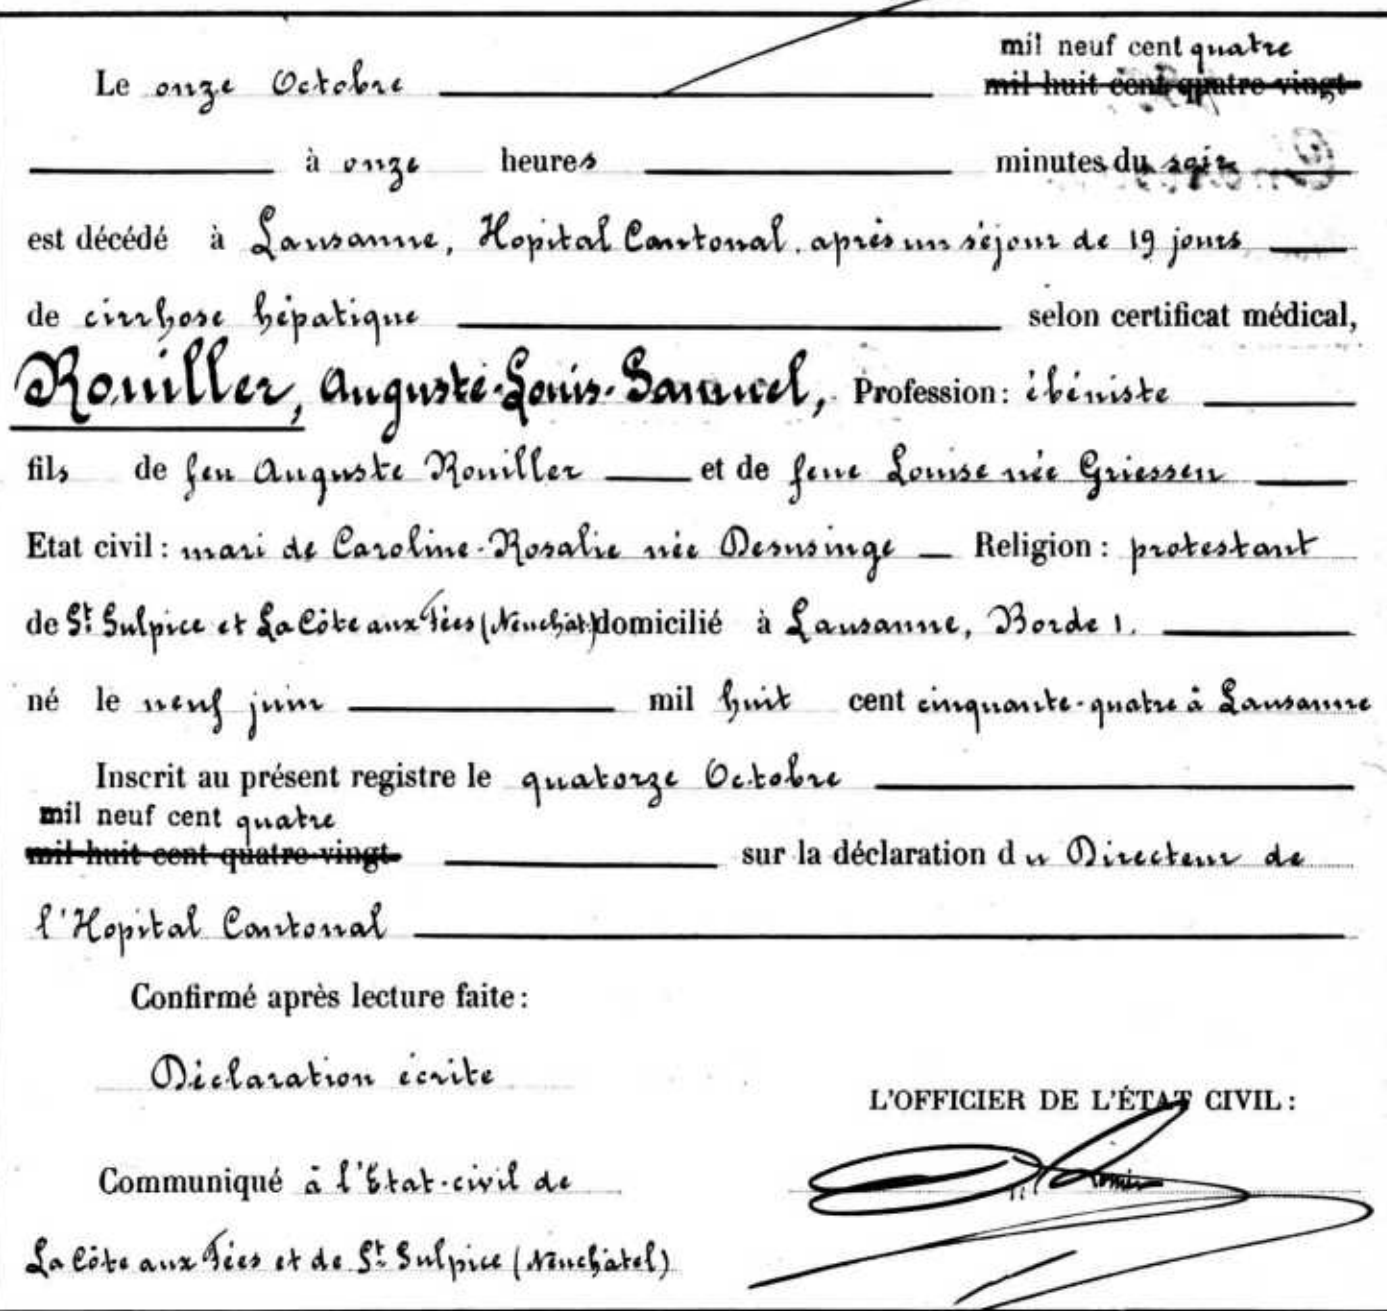 mil neuf cent quatre
Le onze Octobre mil huit cent quatre-vingt
à onze heures minutes du soir
est décédé à Lausanne, Hopital Cantonal. après un séjour de 19 jours
de cirrhose hépatique selon certificat médical,
Rouiller, Auguste-Louis-Samuel, Profession: ébéniste
fils de feu Auguste Rouiller et de feue Louise née Griessen
Etat civil: mari de Caroline-Rosalie née Desusinge Religion: protestant
de St Sulpice et La Côte aux Fées (Neuchât) domicilié à Lausanne, Borde 1.
né le neuf juin mil huit cent cinquante-quatre à Lausanne
Inscrit au présent registre le quatorze Octobre
mil neuf cent quatre
mil huit cent quatre-vingt sur la déclaration du Directeur de
l'Hopital Cantonal
Confirmé après lecture faite:
Déclaration écrite
L'OFFICIER DE L'ÉTAT CIVIL:
Communiqué à l'Etat-civil de
La Côte aux Fées et de St Sulpice (Neuchâtel)